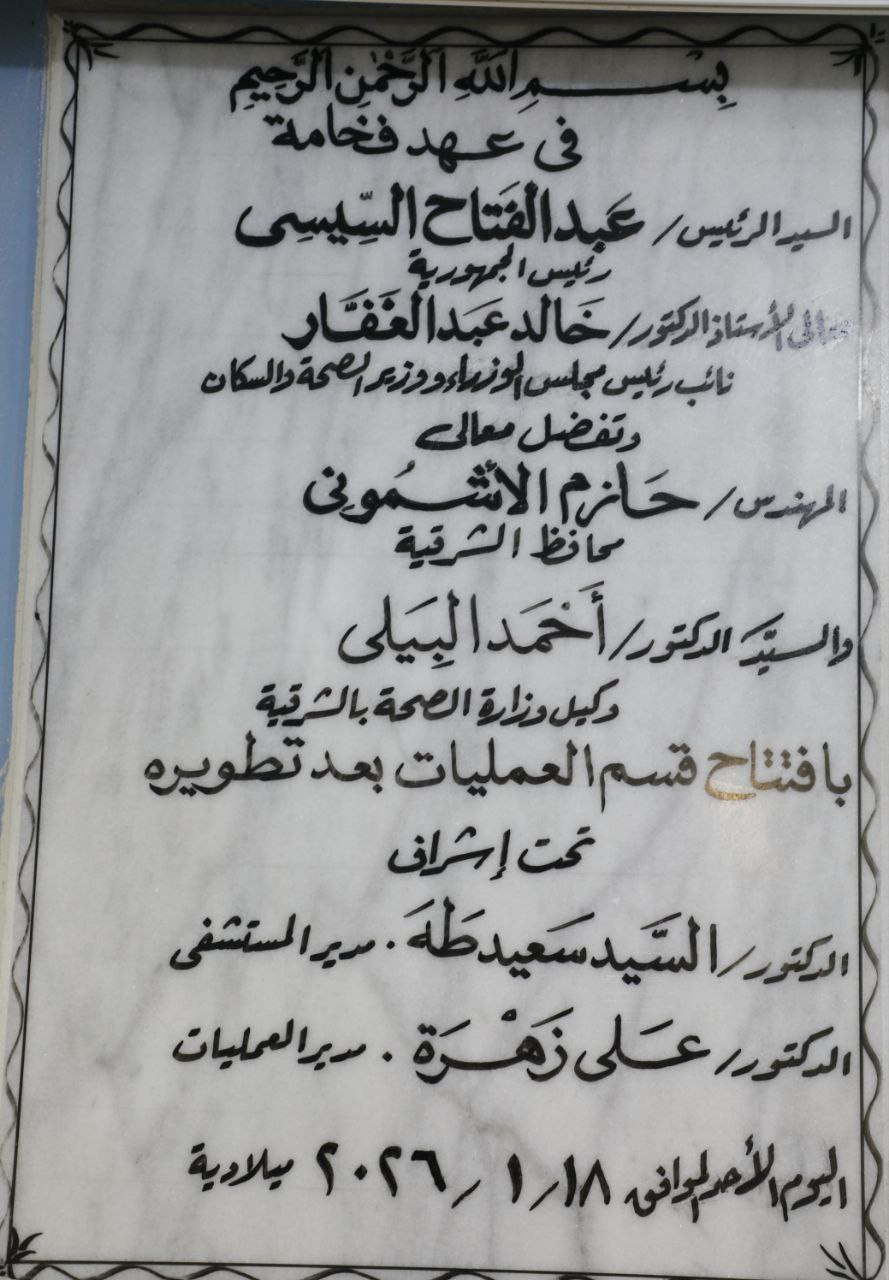 بِسْمِ اللَّهِ الرَّحْمٰنِ الرَّحِيمِ
فى عهد فخامة
السيد الرئيس / عَبد الفَتاح السِّيسِى
رئيس الجمهورية
معالى الأستاذ الدكتور / خَالد عَبَد الغَفَّار
نائب رئيس مجلس الوزراء ووزير الصحة والسكان
وتفضل معالى
المهندس / حَازم الأشمُونِى
محافظ الشرقية
والسيَّد الدكتور / أَحْمَد البِيَلى
وكيل وزارة الصحة بالشرقية
بافتتاح قسم العمليات بعد تطويره
تحت إشراف
الدكتور / السَّيد سَعيد طَهَ . مدير المستشفى
الدكتور / عَلى زَهْرَة . مدير العمليات
اليوم الأحد الموافق ١٨ / ١ / ٢٠٢٦ ميلادية